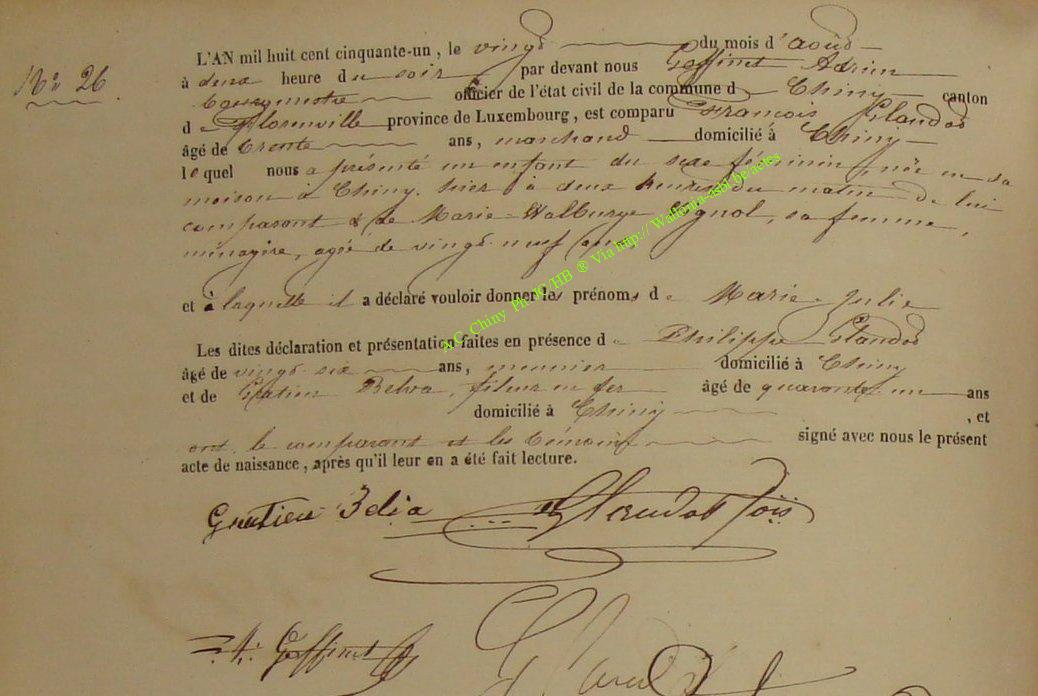 No 26
L'AN mil huit cent cinquante-un, le vingt du mois d'août
à deux heure du soir par devant nous Goffinet Adrien
Bourgmestre officier de l'état civil de la commune d e Chiny canton
d e Florenville province de Luxembourg, est comparu François Glandot
âgé de trente ans, marchand domicilié à Chiny
lequel nous a présenté un enfant du sexe féminin, née en sa
maison à Chiny, hier à deux heures du matin de lui
comparant & de Marie-Walburge Gignol, sa femme,
ménagère, agée de vingt neuf ans,
et à laquelle il a déclaré vouloir donner les prénoms d e Marie-Julie
Les dites déclaration et présentation faites en présence d e Philippe Glandot
âgé de vingt six ans, meunier domicilié à Chiny
et de Gratien Belva, fileur en fer âgé de quarante un ans
domicilié à Chiny , et
ont le comparant et les témoins signé avec nous le présent
acte de naissance, après qu'il leur en a été fait lecture.
Gratien Belva Glandot fois
A. Goffinet
A.C. Chiny Ph JC/HB ® Via http://Wallonia-asbl.be/actes